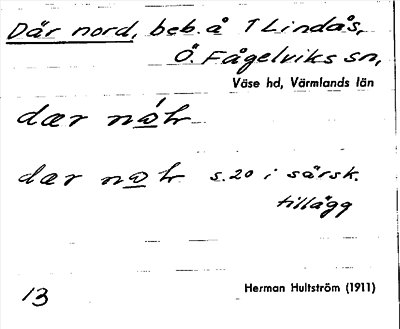 Där nord, beb. å T Lindås,
Ö. Fågelviks sn,
Väse hd, Värmlands län
dær
dær s. 20 i särsk.
tillägg
13
Herman Hultström (1911)